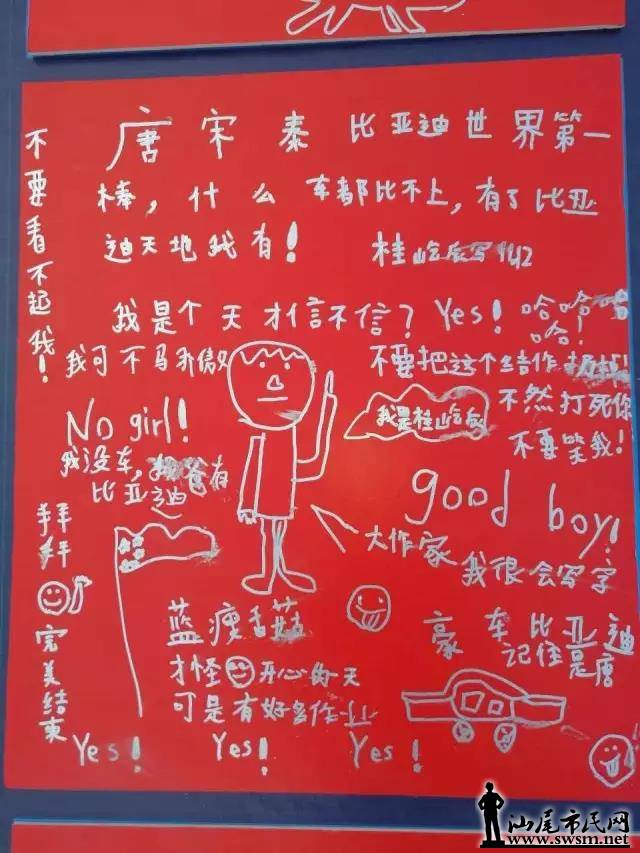 唐 宋 秦 比亚迪世界第一
棒，什么车都比不上，有了比亚
迪天地我有！ 桂屹后写
不要看不起我！
我是个天才信不信？Yes！哈哈
哈！
我可不骄傲
不要把这个结作扔掉
不然打死你
不要笑我！
我是桂屹后
No girl!
我没车，爸有
比亚迪
good boy!
大作家
我很会写字
拜拜
完美结束
蓝瘦香菇
才怪 开心的天
可是有好多作业
豪车比亚迪
记住是唐
Yes! Yes! Yes!
汕尾市民网
www.swsm.net